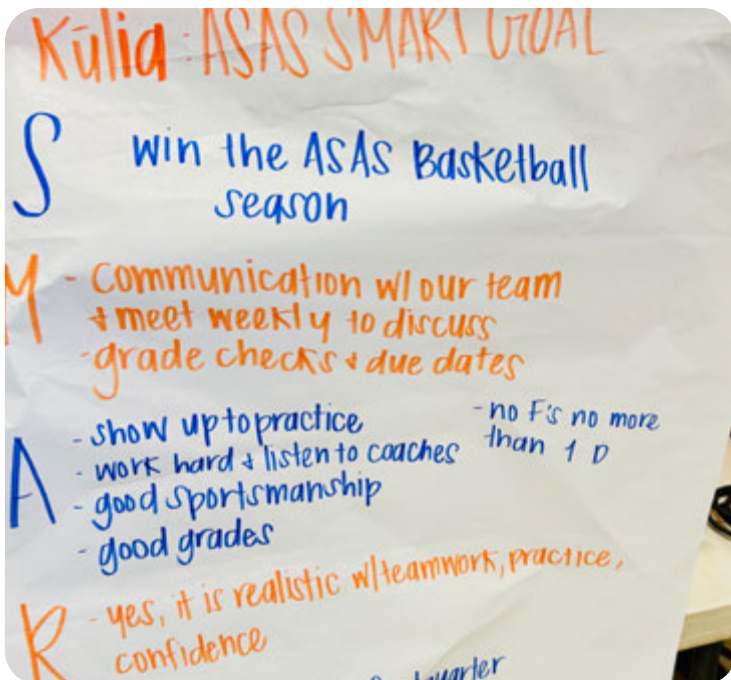 Kūlia: ASAS SMART GOAL
S win the ASAS Basketball
season
M - communication w/ our team
+ meet weekly to discuss
- grade checks + due dates
A - show up to practice
- work hard + listen to coaches
- good sportsmanship
- good grades
- no F's no more
than 1 D
R - yes, it is realistic w/ teamwork, practice,
confidence
quarter